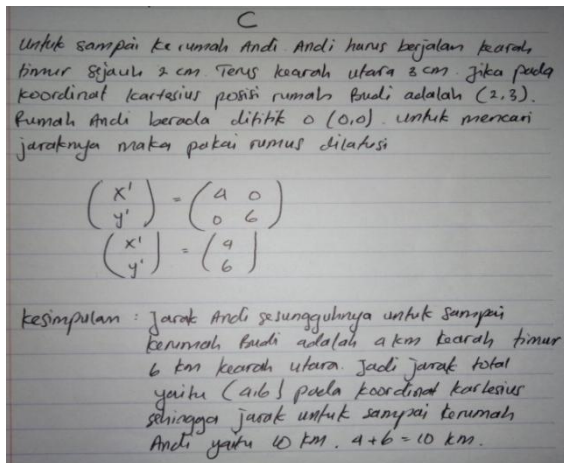 C
Untuk sampai ke rumah Andi. Andi harus berjalan kearah
timur sejauh 2 cm. Terus kearah utara 3 cm. Jika pada
koordinat kartesius posisi rumah Budi adalah (2,3).
Rumah Andi berada dititik 0 (0,0). untuk mencari
jaraknya maka pakai rumus dilatasi
(x' y') = (4 0 0 6)
(x' y') = (4 6)
kesimpulan : Jarak Andi sesungguhnya untuk sampai
kerumah Budi adalah 4 km kearah timur
6 km kearah utara. Jadi jarak total
yaitu (4,6) pada koordinat kartesius
sehingga jarak untuk sampai kerumah
Andi yaitu 10 km. 4+6=10 km.